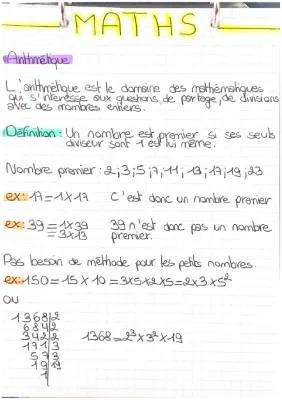 MATHS
Arithmétique
L'arithmétique est le domaine des mathématiques
qui s'intéresse aux questions, de partage, de divisions
avec des nombres entiers.
Définition : Un nombre est premier si ses seuls
diviseur sont 1 et lui même.
Nombre premier : 2;3;5;7;11;13;17;19;23
ex: 17=1X17 C'est donc un nombre premier
ex: 39=1X39 39 n'est donc pas un nombre
=3X13 premier.
Pas besoin de méthode pour les petits nombres.
ex: 150=15X10=3X5X2X5=2X3X5²
ou
1368|2
684|2
342|2 1368=2³X3²X19
171|3
57|3
19|19
1